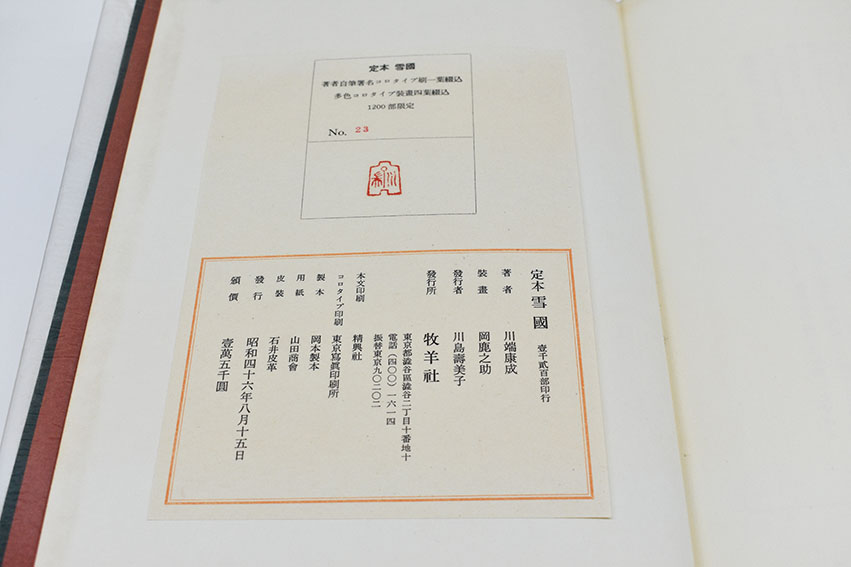 定本 雪國
著者自筆署名コロタイプ刷一葉綴込
多色コロタイプ裝畫四葉綴込
1200部限定
No. 23
定本 雪國 壹千貳百部印行
著者 川端康成
裝畫 岡鹿之助
發行者 川島壽美子
發行所 牧羊社
東京都澁谷區澁谷二丁目十番地十
電話(四〇〇)一六一四
振替東京九〇二〇二
本文印刷 精興社
コロタイプ印刷 東京寫眞印刷所
製本 岡本製本
用紙 山田商會
皮裝 石井皮革
發行 昭和四十六年八月十五日
頒價 壹萬五千圓